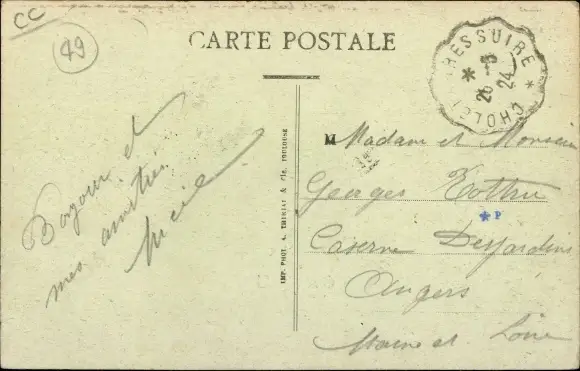 CC
49
CARTE POSTALE
BRESSUIRE
* *
26 - 3
24
CHOLET
Bonjour et
mes amitiés
IMP. PHOT. A. THIRIAT & Cie. TOULOUSE
M Madame et Monsieur
Georges
* P
Caserne Desjardins
Angers
Maine et Loire